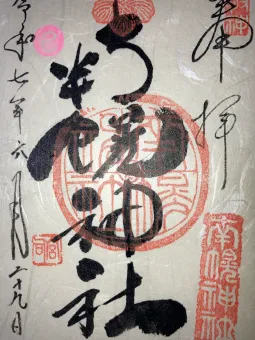 奉拝
南幌神社
南幌神社
令和七年六月二十九日